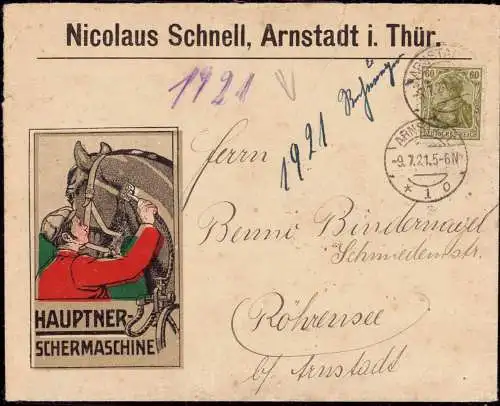 Nicolaus Schnell, Arnstadt i. Thür.
1921
1921 Rechnungen
60 60
DEUTSCHES REICH
ARNSTADT
-9.7.21.5-6N
* 1 o
Herrn
Benno Bindernagel
Schmiedemstr.
Röhrensee
b/ Arnstadt
HAUPTNER-
SCHERMASCHINE